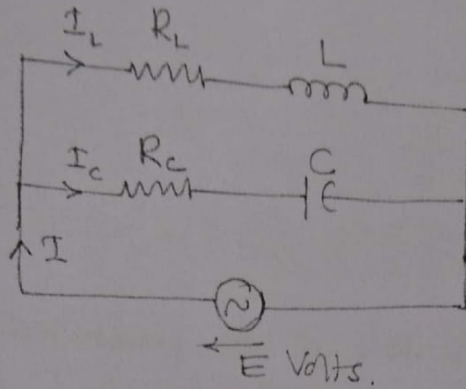 I_L R_L L
I_c R_c C
I
E Volts.